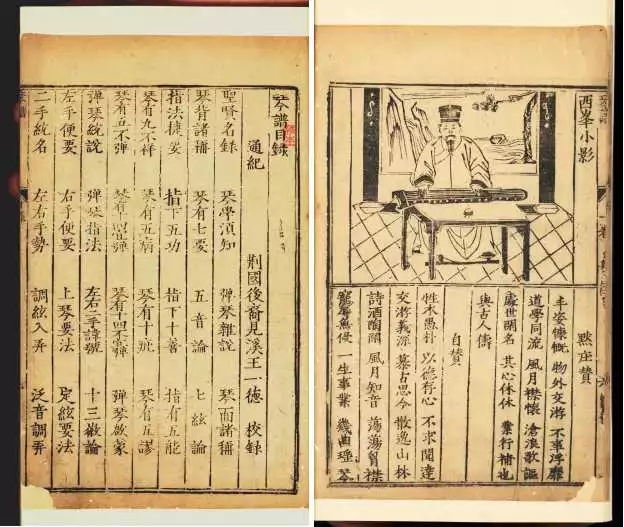 西峯小影
黙座贊
丰姿慷慨 物外交游 不事浮靡
道學同流 風月襟懷 滄浪歌謳
處世閒名 其心休休 業行補也
與古人儔
自贊
性本愚朴 以德存心 不求聞達
交游義深 慕古思今 散逸山林
詩酒陶 風月知音 蕩蕩胷襟
寵辱無侵 一生事業 幾曲瑤琴
琴譜目錄
通紀 荆國後裔見溪王一德 校錄
聖賢名錄 琴學須知 彈琴雜說 琴面諸稱
琴背諸稱 琴有七要 五音論 七絃論
指法捷要 指下五功 指下十善 指有五能
琴有九不祥 琴有五病 琴有十疵 琴有五謬
琴有五不彈 琴有宜彈 琴有十四不宜彈 彈琴啟蒙
彈琴統說 彈琴指法 左右二手諱號 十三徽論
左手便要 右手便要 上琴要法 定絃要法
二手統名 左右手勢 調絃入弄 泛音調弄